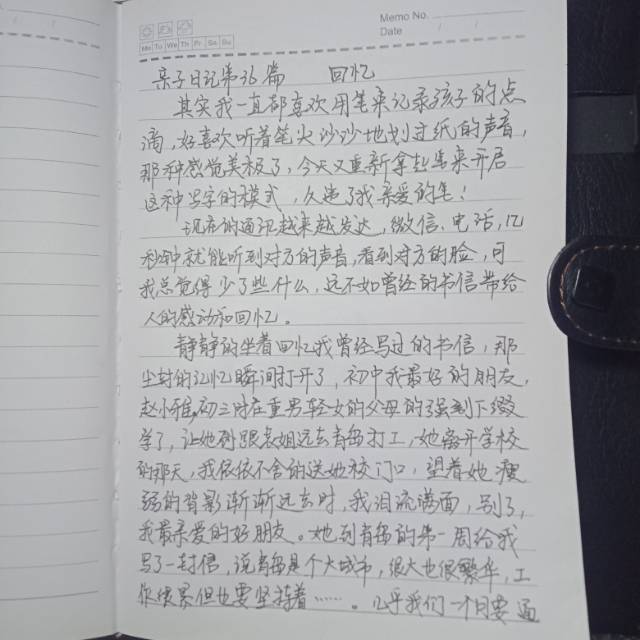 Memo No.
Date / /
Mo Tu We Th Fr Sa Su
亲子日记第36篇 回忆
其实我一直都喜欢用笔来记录孩子的点
滴,好喜欢听着笔尖沙沙地划过纸的声音,
那种感觉美极了,今天又重新拿起笔来开启
这种写字的模式,久违了我亲爱的笔!
现在的通讯越来越发达,微信、电话,几
秒钟就能听到对方的声音,看到对方的脸,可
我总觉得少了些什么,远不如曾经的书信带给
人的感动和回忆。
静静的坐着回忆我曾经写过的书信,那
尘封的记忆瞬间打开了,初中我最好的朋友,
赵小雅,初三时在重男轻女的父母的强制下缀
学了,让她跟表姐远去青岛打工,她离开学校
的那天,我依依不舍的送她校门口,望着她瘦
弱的背影渐渐远去时,我泪流满面,别了,
我最亲爱的好朋友。她到青岛的第一周给我
写了一封信,说青岛是个大城市,很大也很繁华,工
作很累但也要坚持着……。几乎我们一个月要通